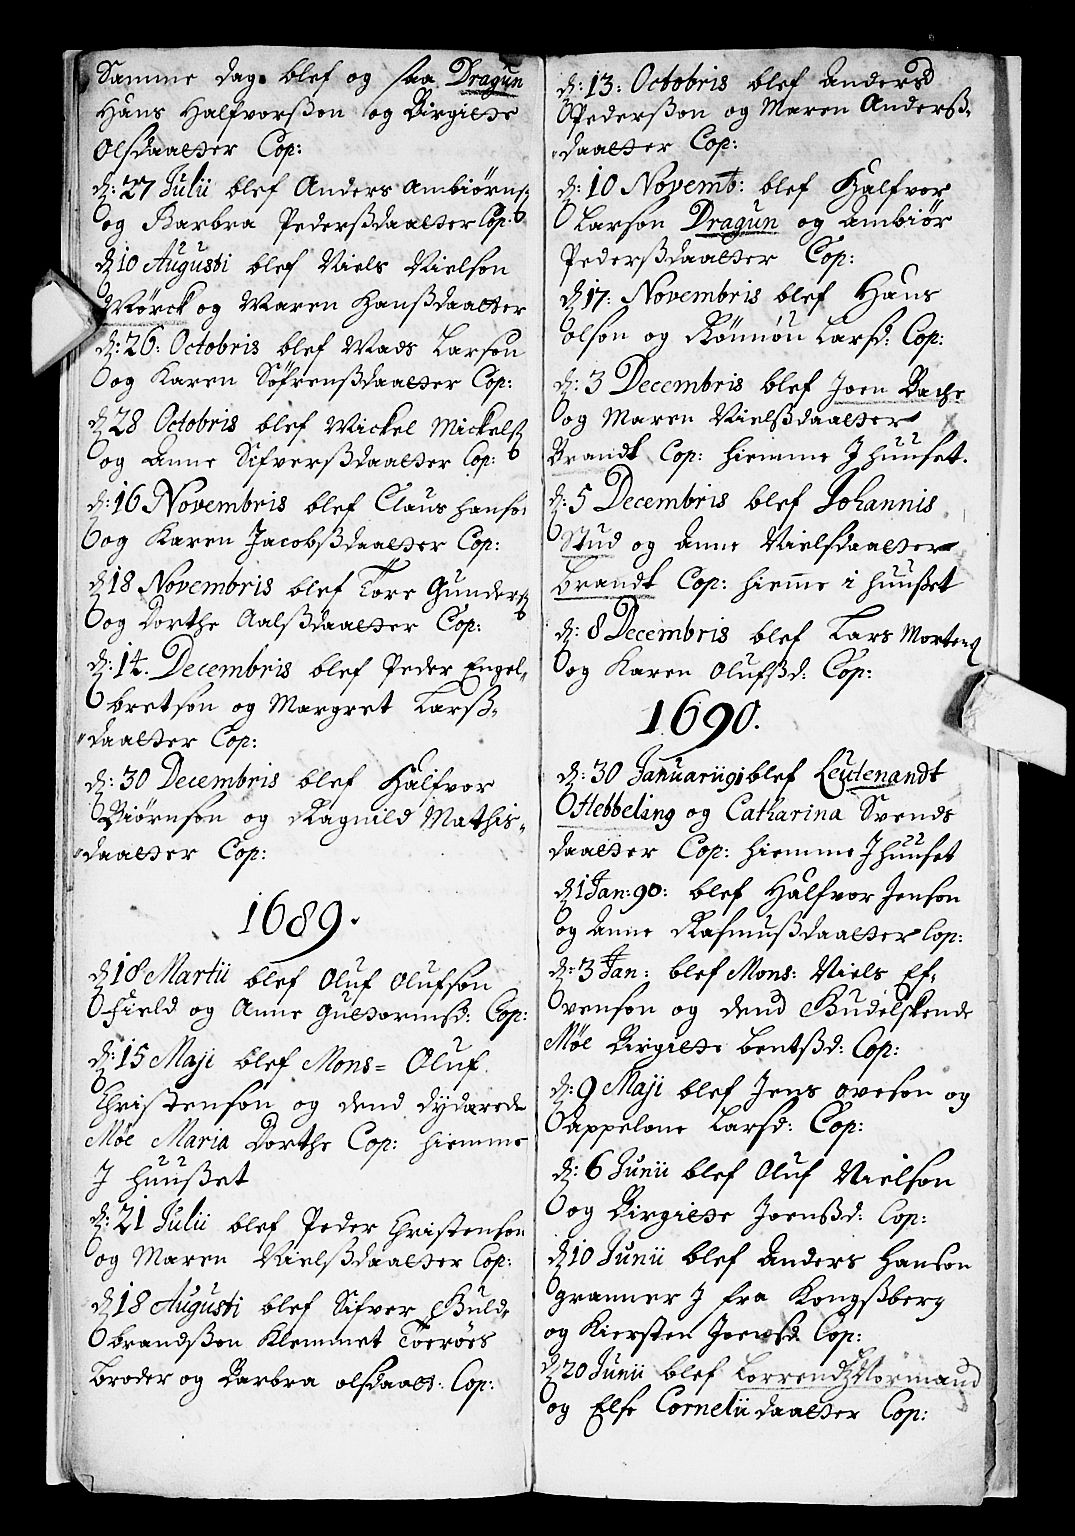 Samme dag blef og saa Dragun
Hans Halfvorsßon og Birgitte
Olsdaatter Cop:
d: 27 Julii blef Anders Ambiørns:
og Barbra Pedersßdaatter Cop:
d 10 Augusti blef Niels Nielson
Mørck og Maren Hansßdaatter
d: 26: Octobris blef Mads Larson
og Karen Søfrensßdaatter Cop:
d 28 Octobris blef Mickel Mickels
og Anne Sifversßdaatter Cop:
d: 16 Novembris blef Claus hanso
og Karen Jacobsßdaatter Cop:
d 18 Novembris blef Tore Gunders
og Dorthe Aalsßdaatter Cop:
d: 14. Decembris blef Peder Engel-
bretson og Margret Larsß-
daatter Cop:
d: 30 Decembris blef Halfvor
Biørnson og Ragnild Mathis-
daatter Cop:
1689.
d 18 Martii blef Oluf Olufson
Field og Anne Guttormsd: Cop:
d: 15 Maji blef Mons= Oluf
Christenson og dend dydærede
Møe Maria Dorthe Cop: hiemme
J huußet
d: 21 Julii blef Peder Christenson
og Maren Nielsßdaatter Cop:
d 18 Augusti blef Sifver Guld-
brandsßon Klemmet
broder og Barbra olsdaatt: Cop:
d: 13: Octobris blef Anders
Pedersßon og Maren Andersß-
daatter Cop:
d: 10 Novemb: blef Halfvor
Larson Dragun og Ambiør
Pedersßdaatter Cop:
d 17: Novembris blef Hans
olson og Rønnøu Larsd: Cop:
d: 3 Decembris blef Joen Bache
og Maren Nielsßdaatter
Brandt Cop: hiemme J huuset.
d: 5 Decembris blef Johannis
Stud og Anne Nielsdaatter
brandt Cop: hieme i huußet
d: 8 Decembris blef Lars Mortens
og Karen Olufsßd: Cop:
1690.
d: 30 Januarii 91 blef Leutenandt
Hebbeling og Catharina Svends
daatter Cop: hiemme J huuset
d 1 Jan: 90: blef Halfvor Jenson
og Anne Rasmusßdaatter Cop:
d: 3 Jan: blef Mons: Niels Ef-
venson og dend Gudelskende
Møe Birgitte bentsßd: Cop:
d: 9 Maji blef Jens oveson og
appelone Larsd: Cop:
d: 6 Junii blef Oluf Nielson
og Birgitte Joensßd: Cop:
d 10 Junii blef Anders Hanson
granner J fra Kongsßberg
og Kiersten Joensd Cop:
d 20 Junii blef Lorrendz Normand
og Else Cornelii daatter Cop: